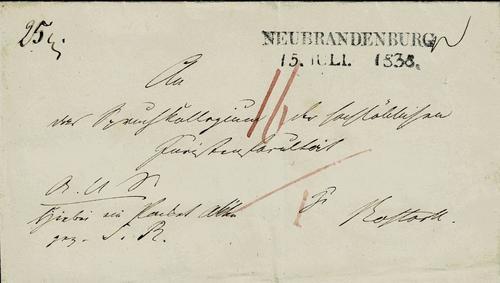 25
NEUBRANDENBURG
15. JULI. 1838.
An
das Spruchkollegium der hochlöblichen
16
Juristenfacultät
Hierbei ein Packet Akten
gez. S. R.
Rostock.